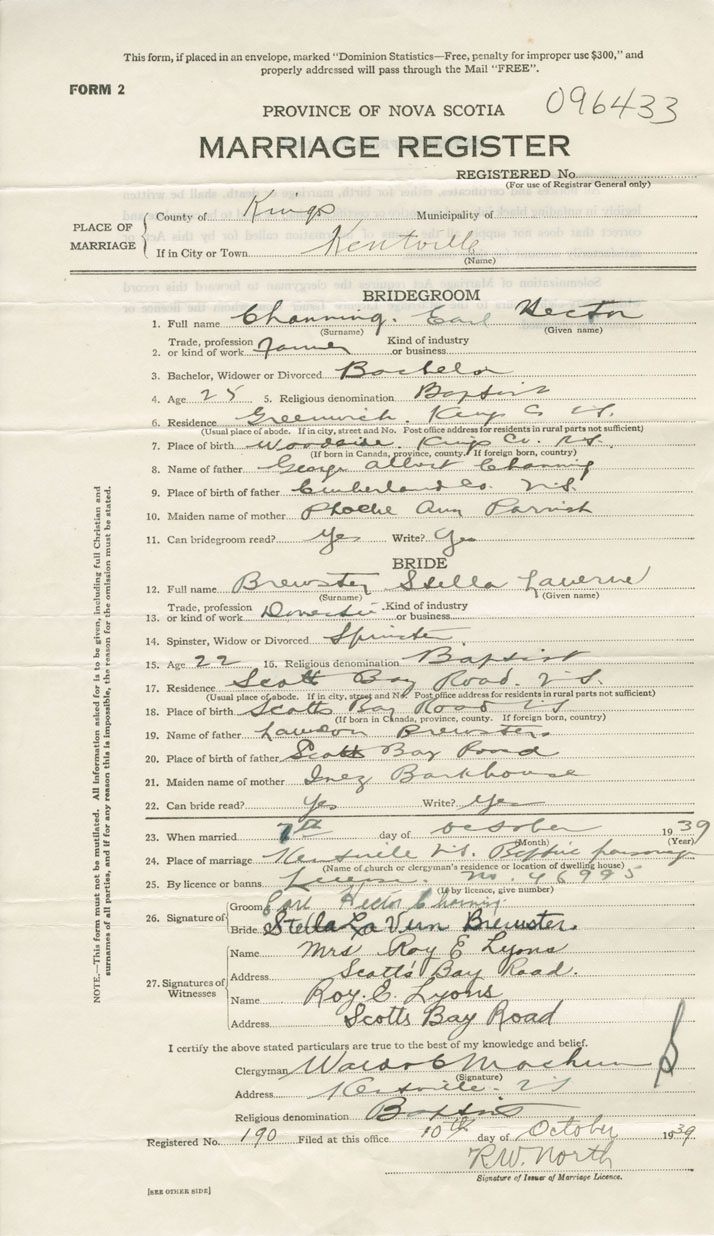 This form, if placed in an envelope, marked "Dominion Statistics—Free, penalty for improper use $300," and
properly addressed will pass through the Mail "FREE".
FORM 2
096433
PROVINCE OF NOVA SCOTIA
MARRIAGE REGISTER
REGISTERED No.
(For use of Registrar General only)
PLACE OF MARRIAGE
County of Kings Municipality of
If in City or Town Kentville
(Name)
BRIDEGROOM
1. Full name Channing. Earl Hector
(Surname) (Given name)
2. Trade, profession or kind of work Farmer Kind of industry or business
3. Bachelor, Widower or Divorced Bachelor
4. Age 25 5. Religious denomination Baptist
6. Residence Greenwich. Kings Co N.S.
(Usual place of abode. If in city, street and No. Post office address for residents in rural parts not sufficient)
7. Place of birth Woodside. Kings Co. N.S.
(If born in Canada, province, county. If foreign born, country)
8. Name of father George Albert Channing
9. Place of birth of father Cumberland Co. N.S.
10. Maiden name of mother Phoebe Ann Parrish
11. Can bridegroom read? Yes Write? Yes
BRIDE
12. Full name Brewster Stella Laverne
(Surname) (Given name)
13. Trade, profession or kind of work Domestic. Kind of industry or business
14. Spinster, Widow or Divorced Spinster
15. Age 22 16. Religious denomination Baptist
17. Residence Scott Bay Road. N.S.
(Usual place of abode. If in city, street and No. Post office address for residents in rural parts not sufficient)
18. Place of birth Scotts Bay Road N.S
(If born in Canada, province, county. If foreign born, country)
19. Name of father Lawson Brewster
20. Place of birth of father Scotts Bay Road
21. Maiden name of mother Inez Barkhouse
22. Can bride read? Yes Write? Yes
23. When married 7th day of October 1939
(Month) (Year)
24. Place of marriage Kentville N.S. Baptist parsonage
(Name of church or clergyman's residence or location of dwelling house)
25. By licence or banns License. No. 46995
(If by licence, give number)
26. Signature of
Groom Earl Hector Channing
Bride Stella La Vern Brewster.
27. Signatures of Witnesses
Name Mrs Roy E Lyons
Address Scott's Bay Road.
Name Roy. E. Lyons
Address Scotts Bay Road
I certify the above stated particulars are true to the best of my knowledge and belief.
Clergyman Waldo C Machum
(Signature)
Address Kentville N.S
Religious denomination Baptist
Registered No. 190 Filed at this office 10th day of October 1939
R.W. North
Signature of Issuer of Marriage Licence.
[SEE OTHER SIDE]
NOTE.—This form must not be mutilated. All information asked for is to be given, including full Christian and
surnames of all parties, and if for any reason this is impossible, the reason for the omission must be stated.